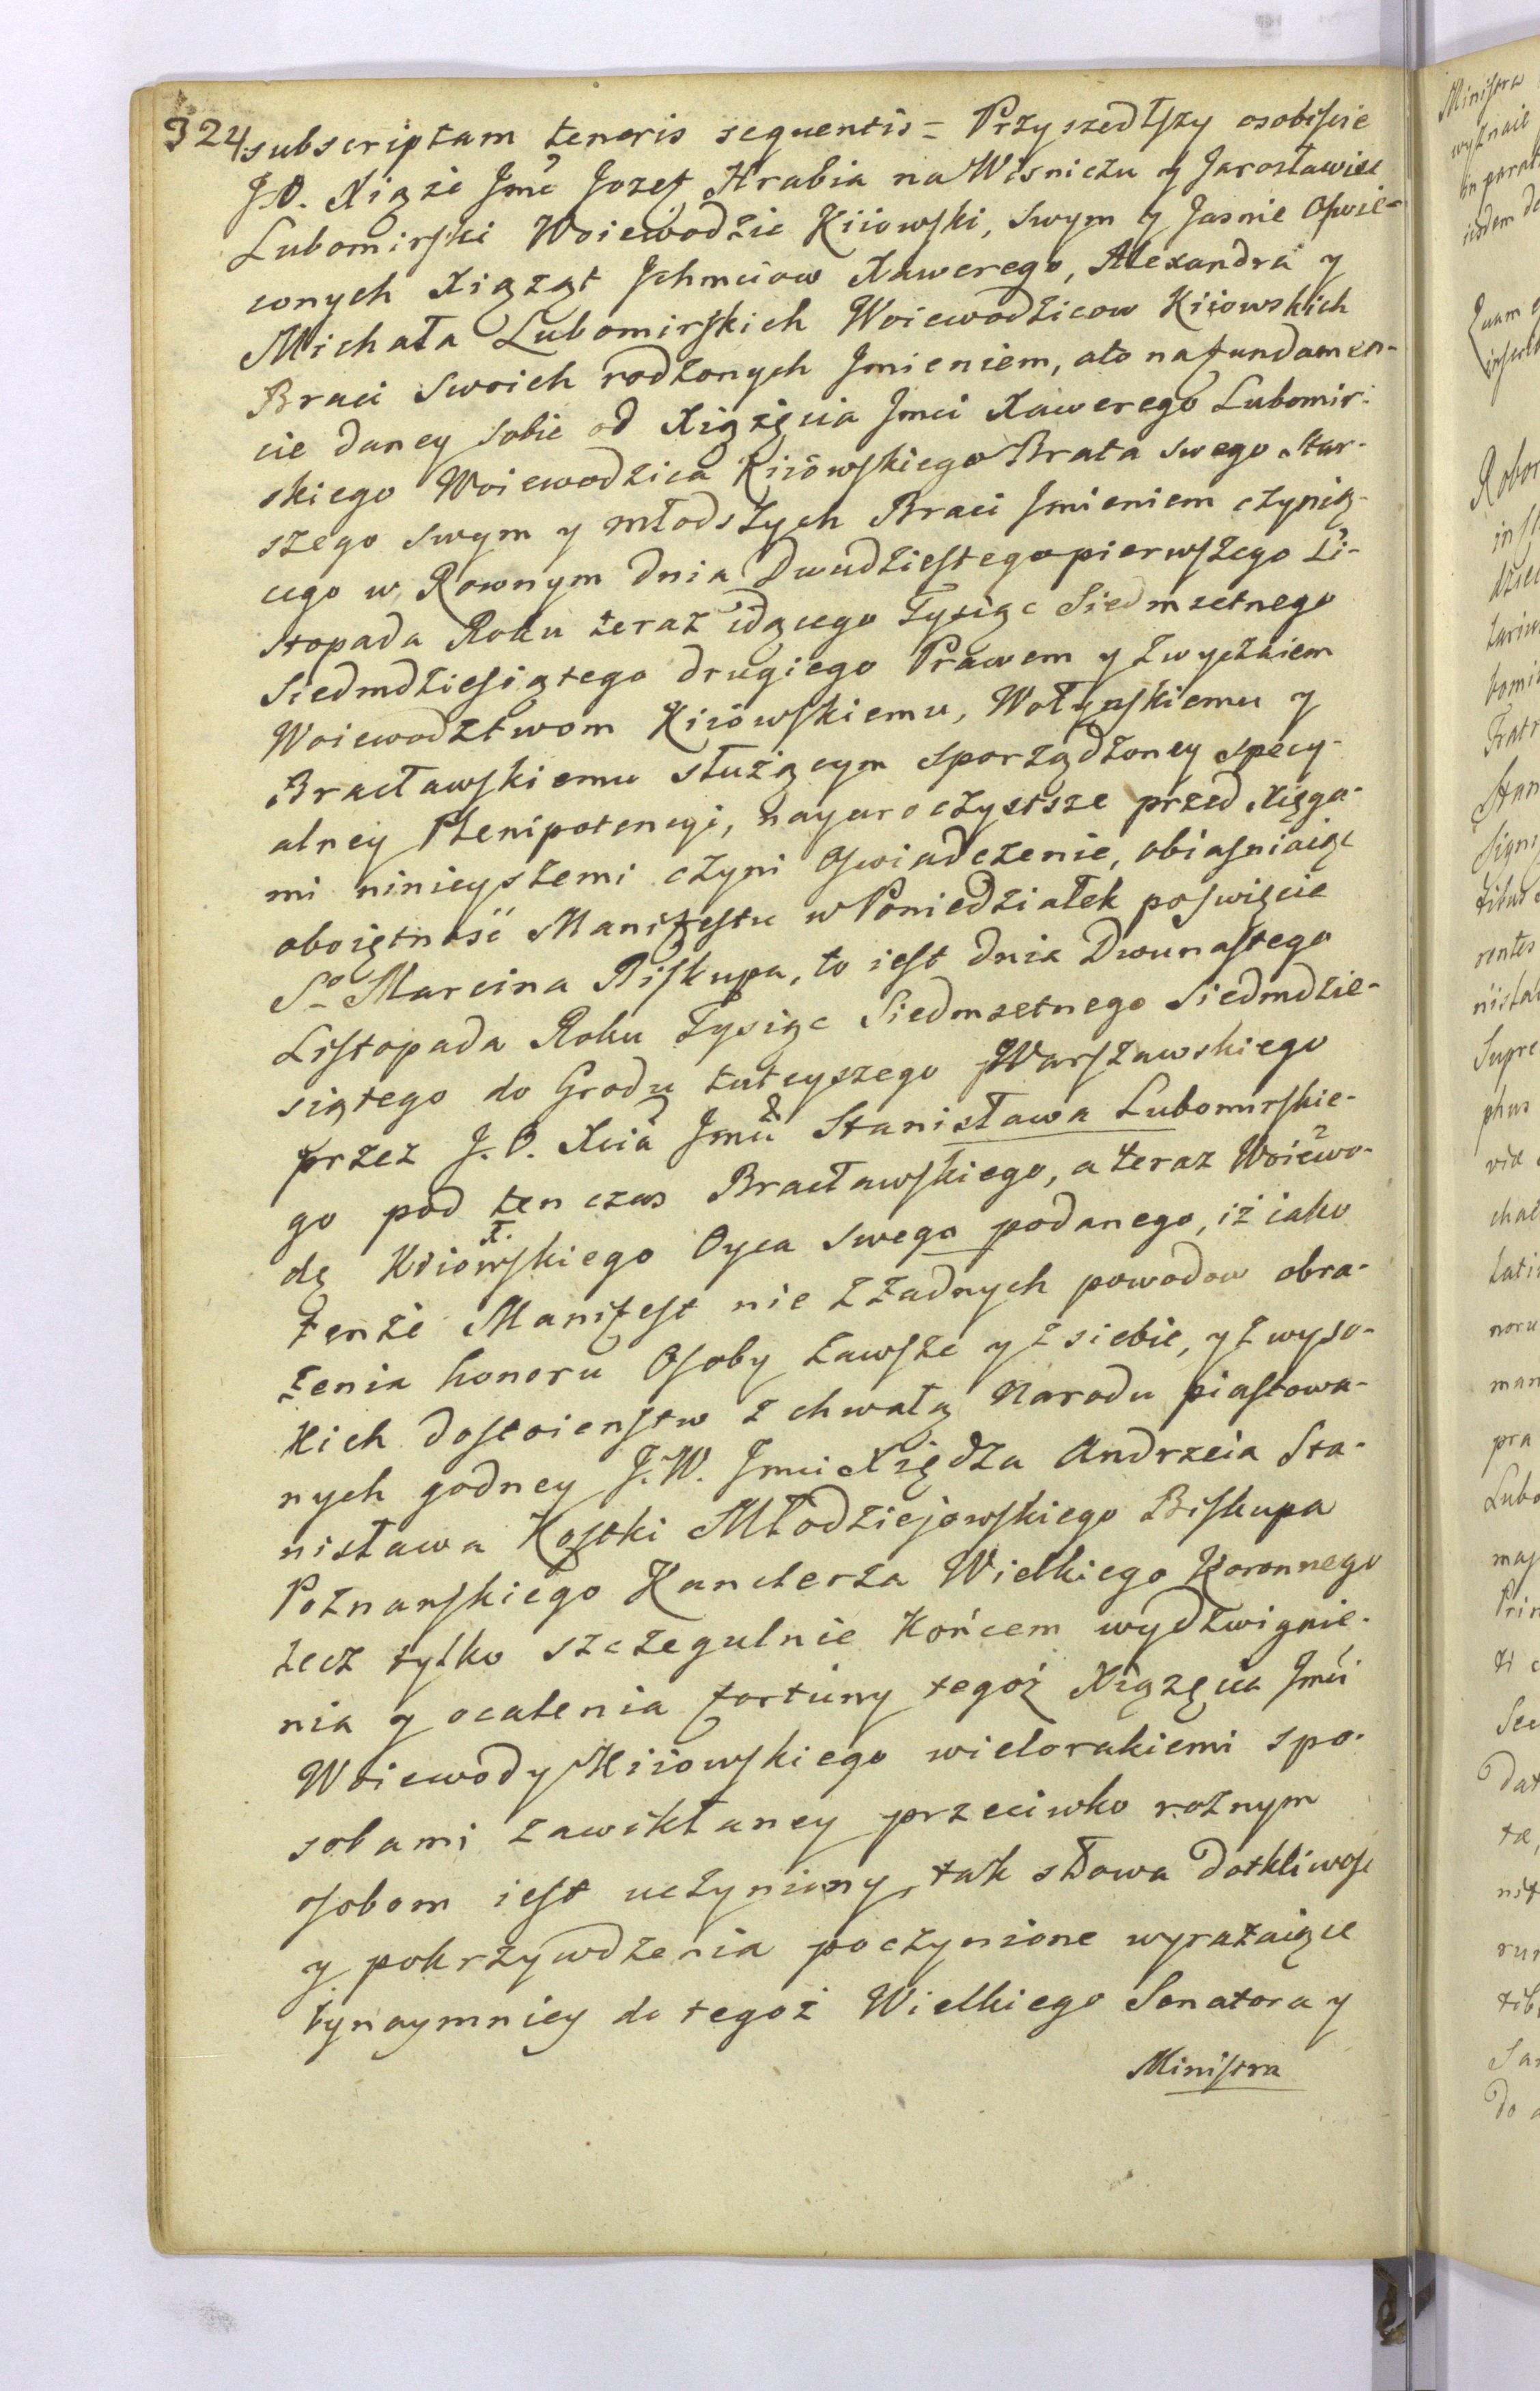 324 subscriptam tenoris sequentis = Przyszedłszy osobiscie
J.O. Xiąże Jmć Jozef Hrabia na Wisniczu y Jarosławiu
Lubomirski Woiewodzic Kiiowski, swym y Jasnie Oswie-
conych Xiążąt Ichmciow Xawerego, Alexandra y
Michała Lubomirskich Woiewodzicow Kiiowskich
Braci swoich rodzonych Imieniem, a to na fundamen-
cie daney sobie od Xiążęcia Jmci Xawerego Lubomir-
skiego Woiewodzica Kiiowskiego Brata swego star-
szego swym y młodszych Braci Imieniem czynią-
cego w Rownym dnia Dwudziestego pierwszego Li-
stopada Roku teraz idącego Tysiąc Siedmsetnego
Siedmdziesiątego drugiego Prawem y zwyczaiem
Woiewodztwom Kiiowskiemu, Wołynskiemu y
Bracławskiemu służącym sporządzoney specy-
alney Plenipotencyi, nayuroczystsze przed Xięga-
mi ninieyszemi czyni oswiadczenie, obiasniaiąc
oboiętność Manifestu w Poniedziałek po swięcie
So Marcina Biskupa, to iest dnia Dwunastego
Listopada Roku Tysiąc Siedmsetnego Siedmdzie-
siątego do Grodu tuteyszego Warszawskiego
przez J.O. Xcia Jmci Stanisława Lubomirskie-
go pod ten czas Bracławskiego, a teraz Woiewo-
dę Kiiowskiego Oyca swego podanego, iż iako
tenże Manifest nie z żadnych powodow obra-
żenia honoru Osoby zawsze y z siebie, y z wyso-
kich dostoienstw z chwałą Narodu piastowa-
nych godney J.W. Jmci Xiędza Andrzeia Sta-
nisława Kostki Młodziejowskiego Biskupa
Poznanskiego Kanclerza Wielkiego Koronnego
lecz tylko szczegulnie końcem wydzwignie-
nia y ocalenia fortuny tegoż Xiążęcia Jmci
Woiewody Kiiowskiego wielorakiemi spo-
sobami zawikłaney przeciwko rożnym
osobom iest uczyniony, tak słowa dotkliwosc
y pokrzywdzenia poczynione wyrażaiące
bynaymniey do tegoż Wielkiego Senatora y
Ministra